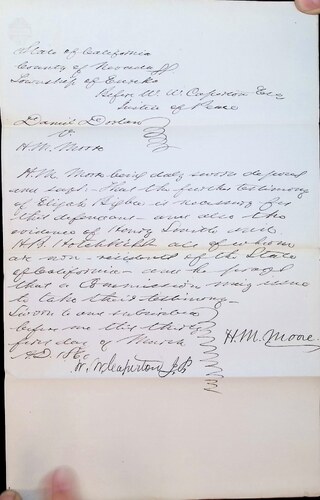 State of California
County of Nevada ss
Township of Eureka
Before W. W. Caperton Esq
Justice of Peace
Daniel Dorlan
v
H. M. Moore
H. M. Moore being duly sworn deposes
and says. That the further testimony
of Elijah is necessary for
this defendant and also the
evidence of Henry Smith and
H. B. Hotchkiss all of whom
are non-residents of the State
of California and he prays
that a Commission may issue
to take their testimony
Sworn to and subscribed
before me this thirty
first day of March
AD 186
H. M. Moore
W. W. Caperton J.P.